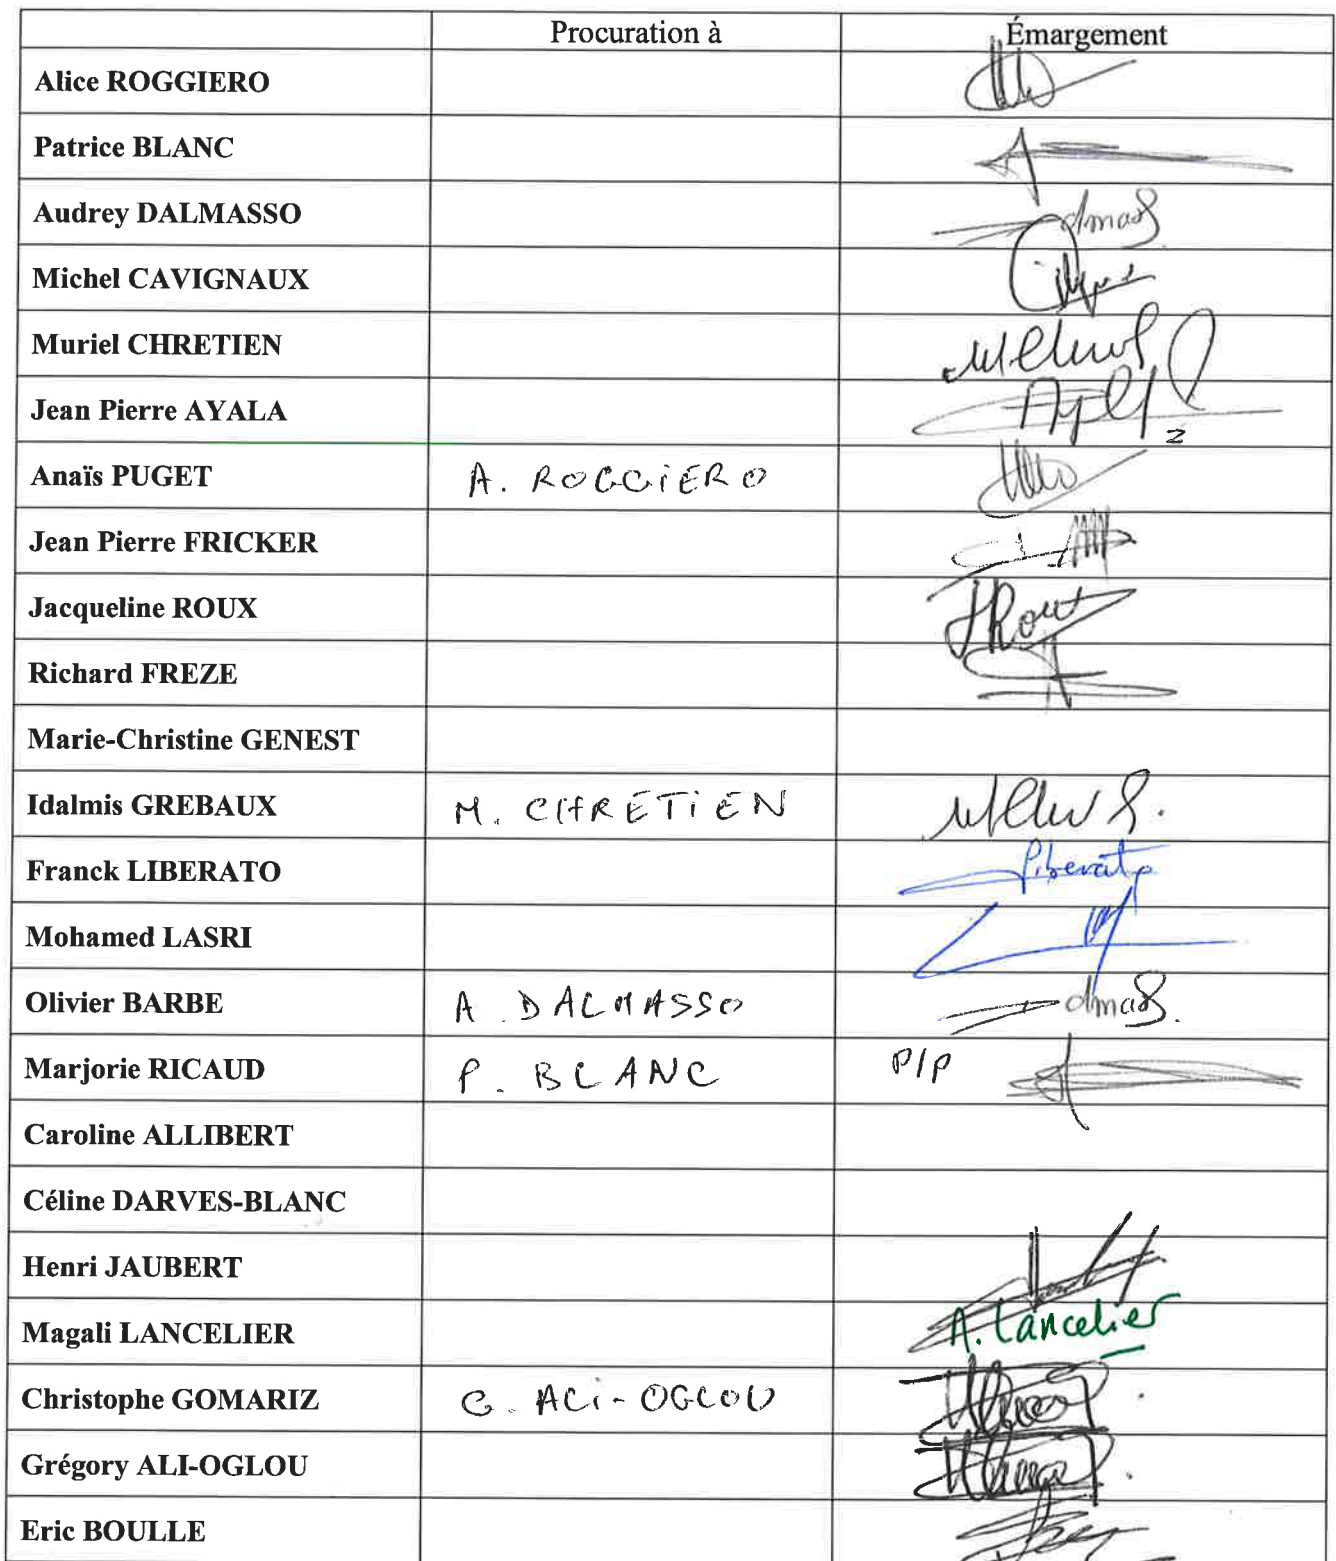 Procuration à Émargement
Alice ROGGIERO
Patrice BLANC
Audrey DALMASSO
Michel CAVIGNAUX
Muriel CHRETIEN
Jean Pierre AYALA
Anaïs PUGET A. ROGGIERO
Jean Pierre FRICKER
Jacqueline ROUX JRoux
Richard FREZE
Marie-Christine GENEST
Idalmis GREBAUX M. CHRETIEN
Franck LIBERATO Liberato
Mohamed LASRI
Olivier BARBE A. DALMASSO
Marjorie RICAUD P. BLANC P/P
Caroline ALLIBERT
Céline DARVES-BLANC
Henri JAUBERT
Magali LANCELIER A. Lancelier
Christophe GOMARIZ G. ALI-OGLOU
Grégory ALI-OGLOU
Eric BOULLE